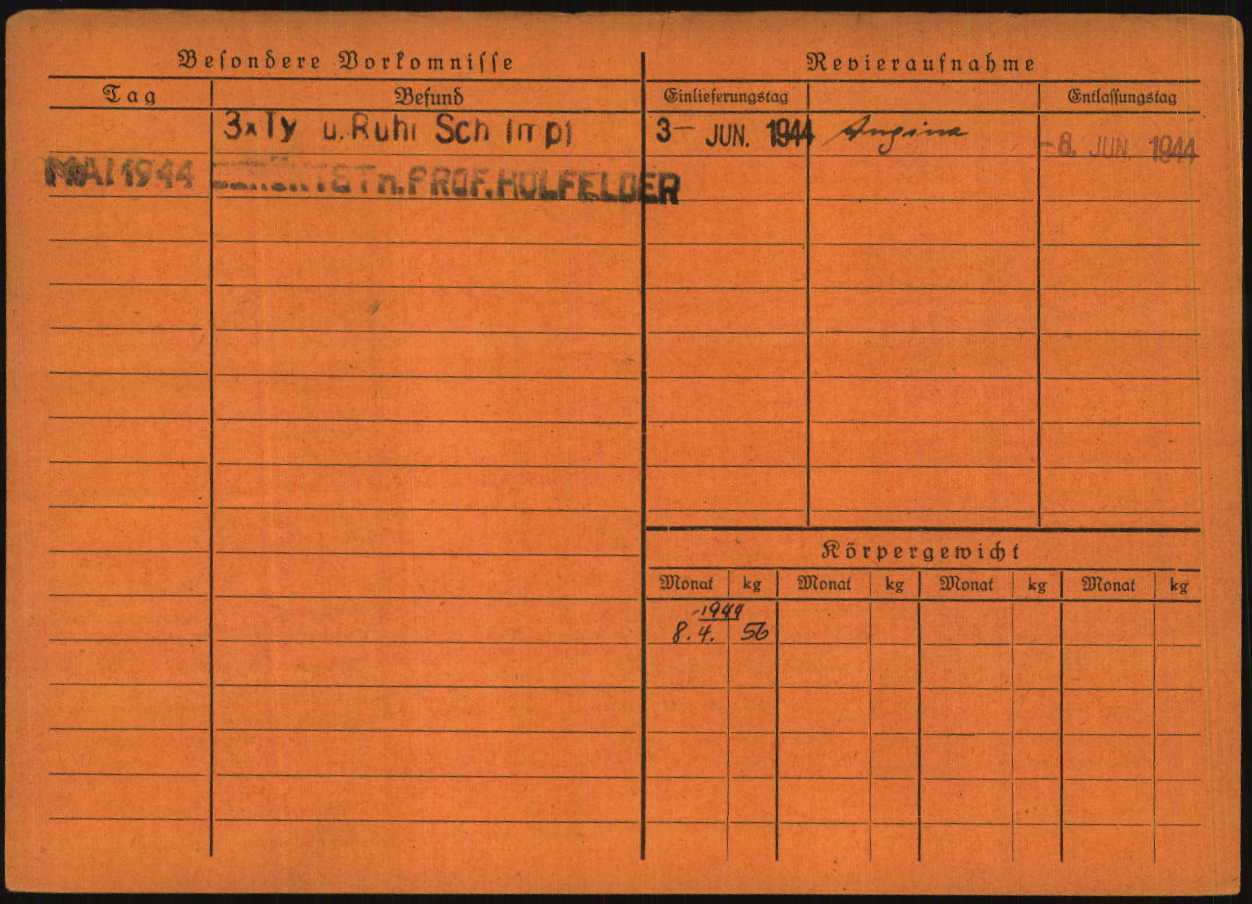 Besondere Vorkomnisse
Tag Befund
3xTy u. Ruhr Sch Impf
MAI 1944 n. PROF. HOLFELDER
Revieraufnahme
Einlieferungstag Entlassungstag
3- JUN. 1944 Angina -8. JUN. 1944
Körpergewicht
Monat kg Monat kg Monat kg Monat kg
-1944
8.4. 56